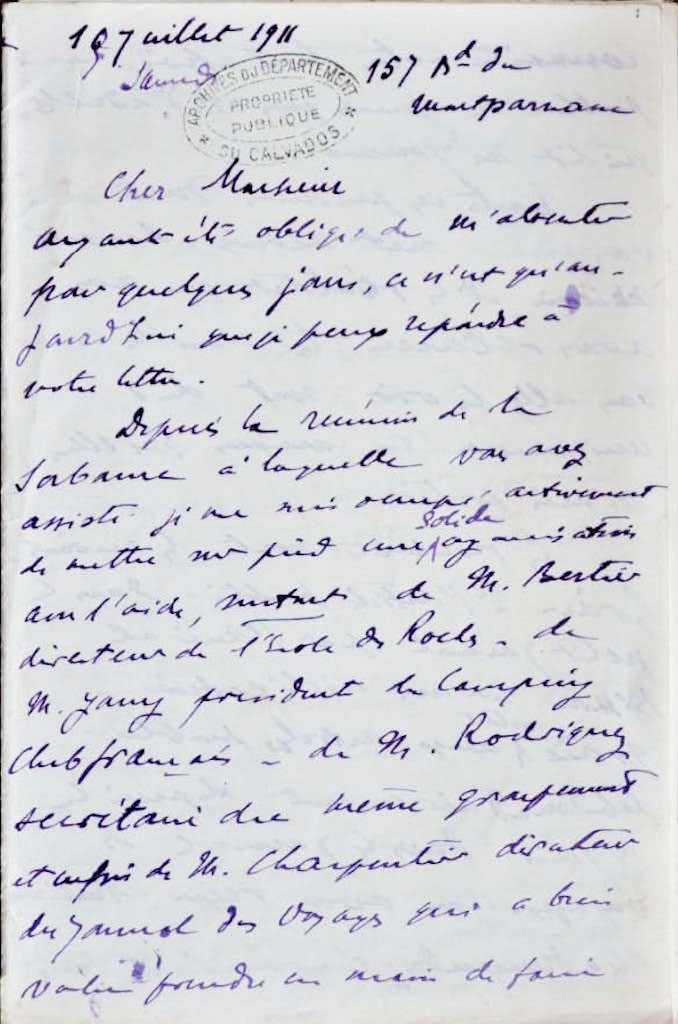 19 Juillet 1911
157 Bd du
Montparnasse
ARCHIVES DU DÉPARTEMENT
PROPRIÉTÉ
PUBLIQUE
DU CALVADOS
Cher Monsieur
ayant été obligé de m'absenter
pour quelques jours, ce n'est qu'au-
jourd'hui que je peux répondre à
votre lettre.
Depuis la réunion de la
Sorbonne à laquelle vous avez
assisté je me suis occupé activement
de mettre sur pied une solide organisation
avec l'aide, surtout de M. Bertier
directeur de l'École des Roches – de
M. président du Camping
Club français – de M. Rodrigues
secrétaire du même groupement
et enfin de M. Charpentier directeur
du Journal des Voyages qui a bien
voulu prendre en main de faire